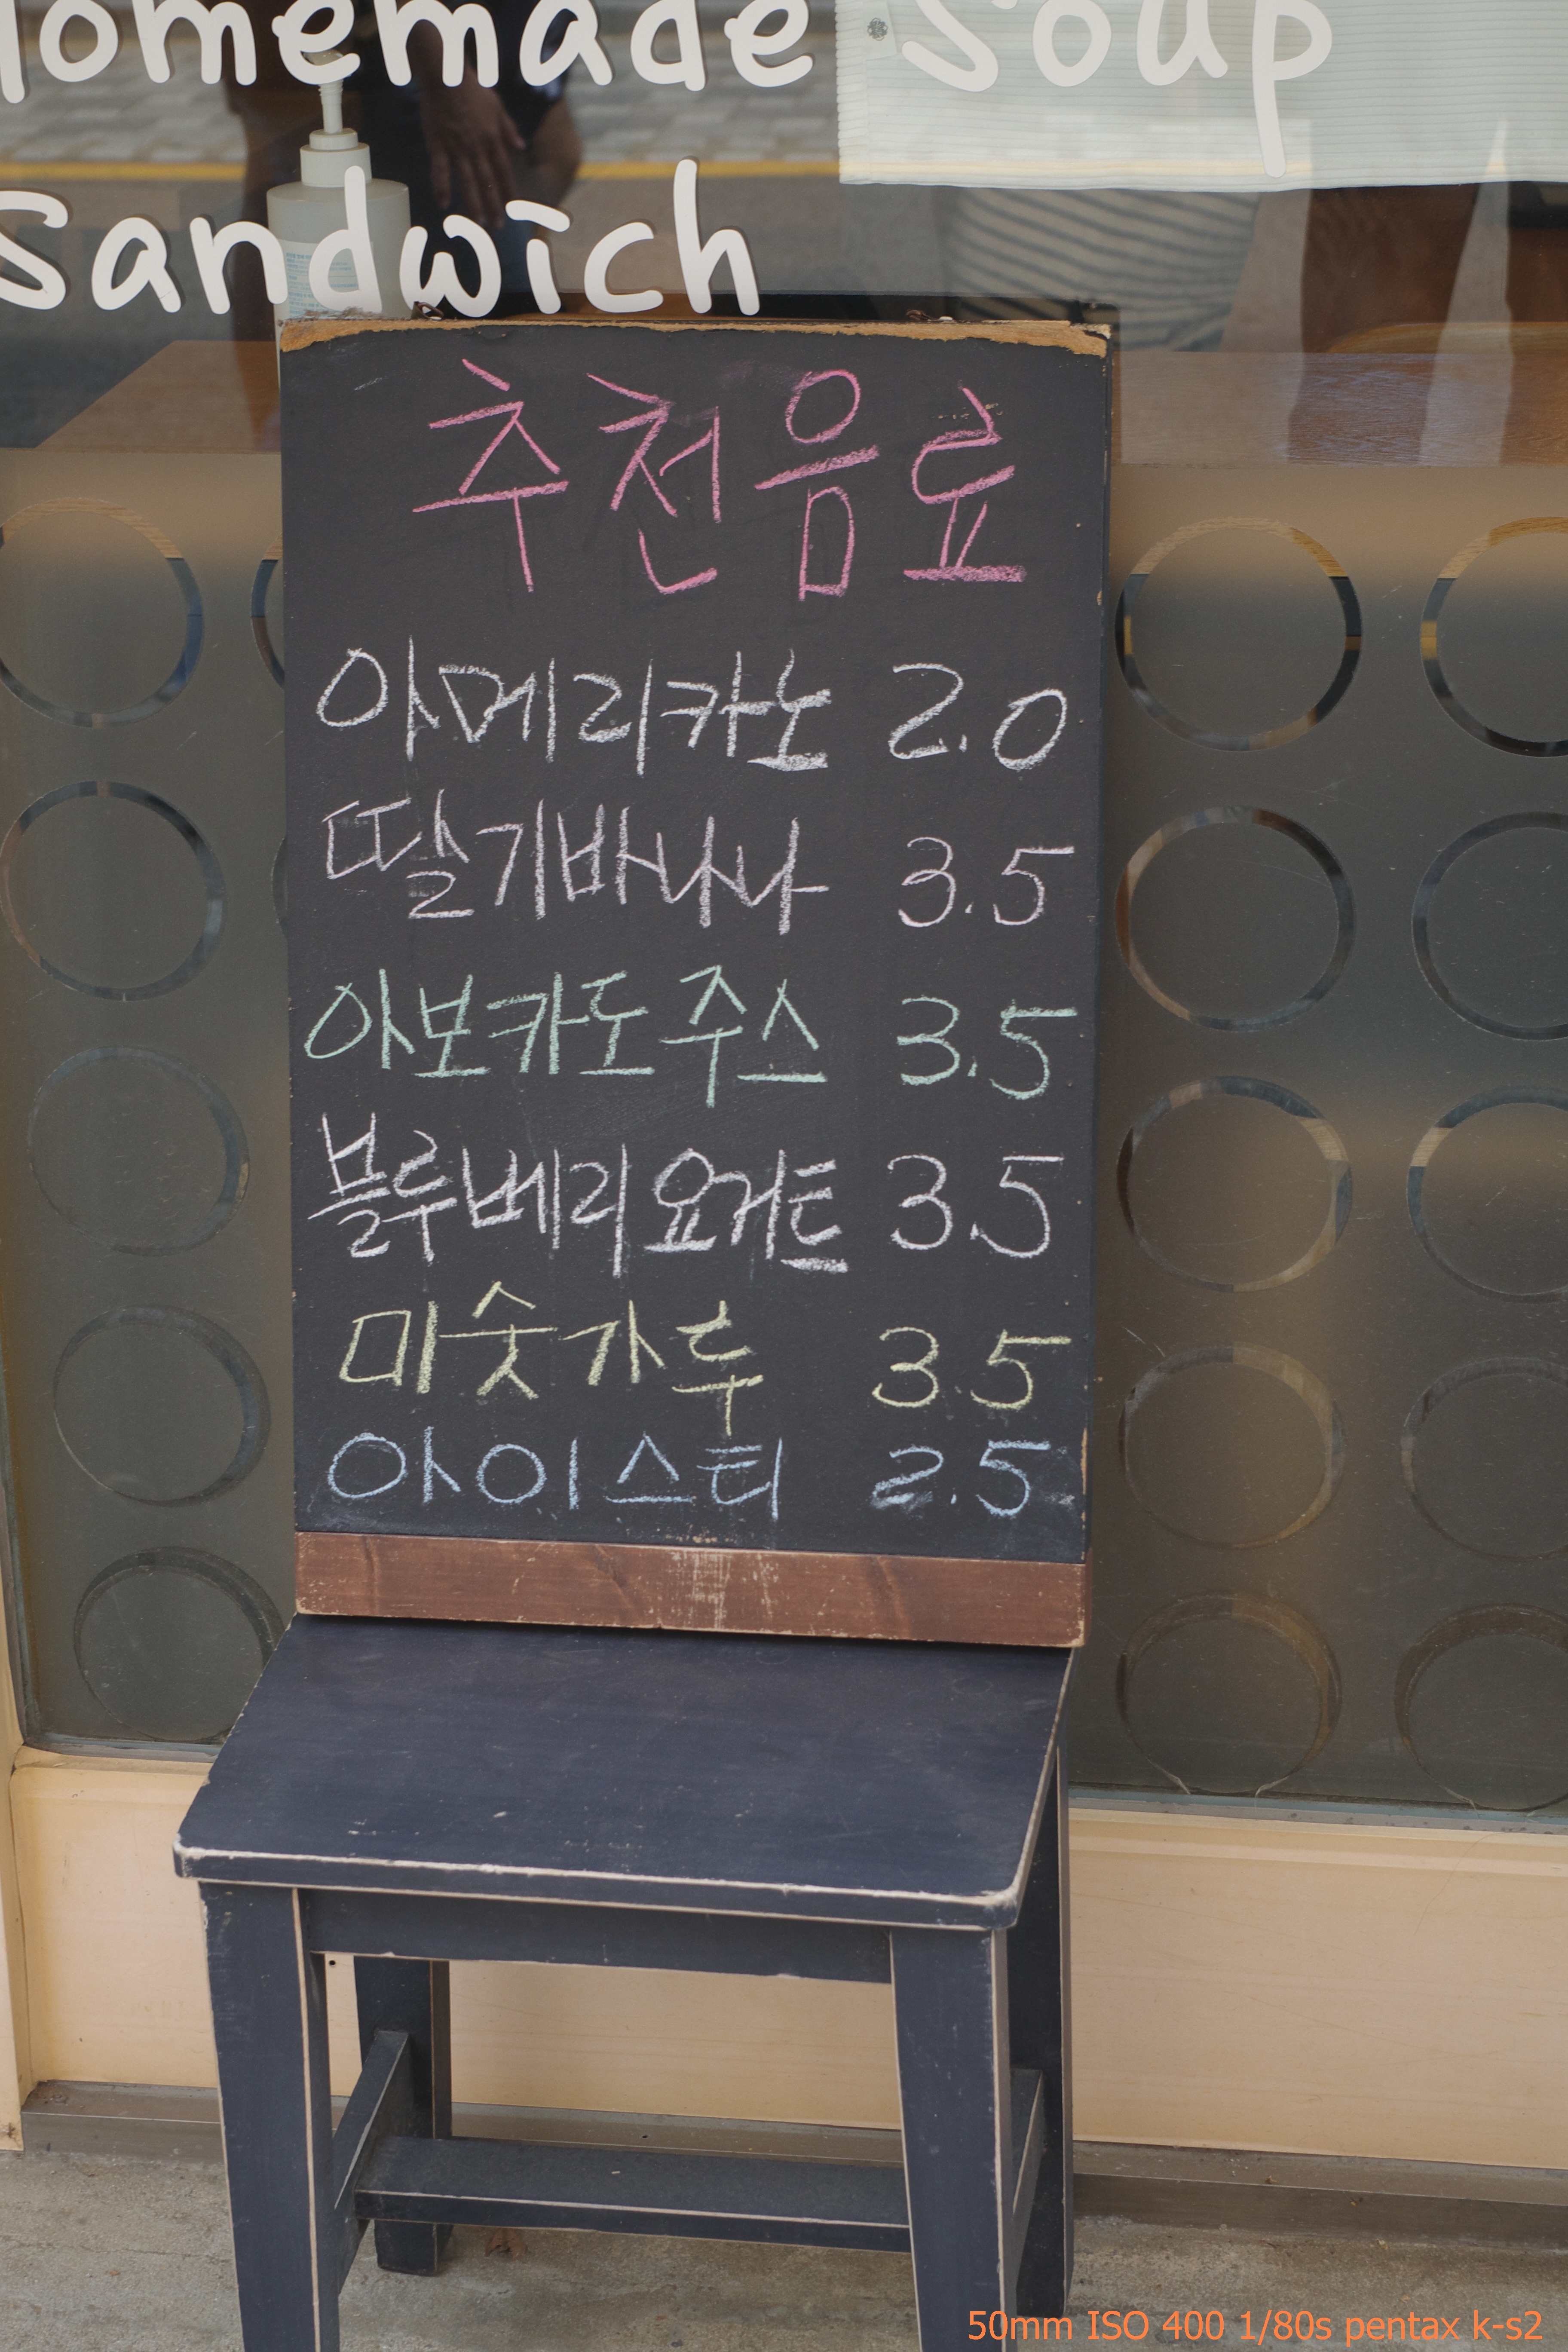 Homemade Soup
Sandwich
추천음료
아메리카노 2.0
딸기바나나 3.5
아보카도 주스 3.5
블루베리 요거트 3.5
미숫가루 3.5
아이스티 2.5
50mm ISO 400 1/80s pentax k-s2